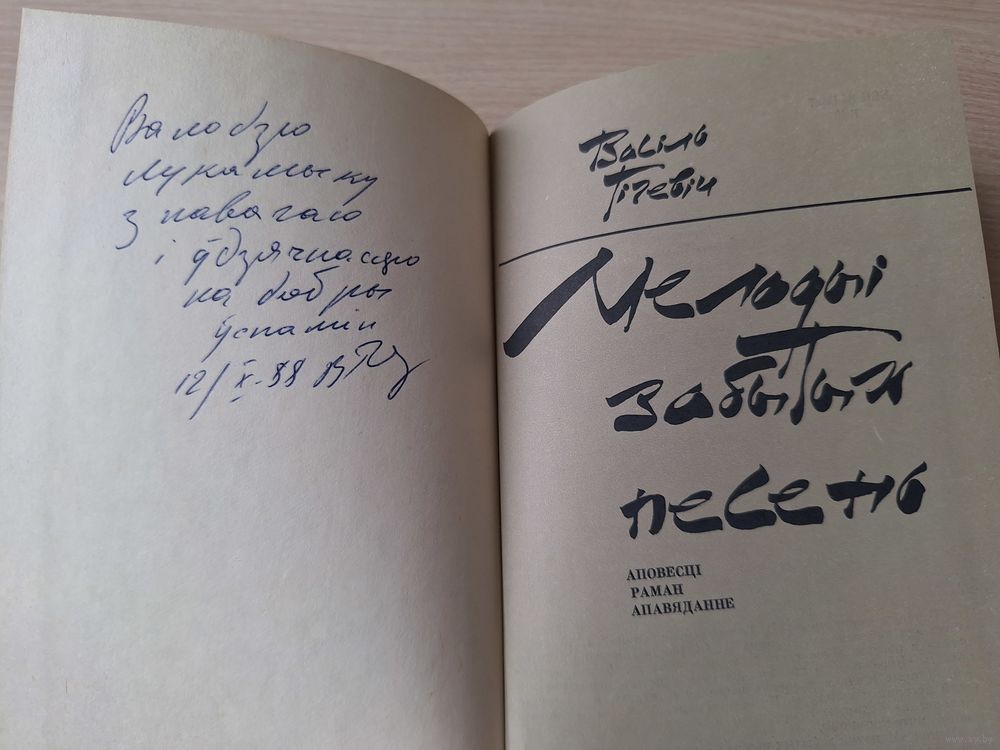 Валодзю
Лукашыку
з павагаю
і ўдзячнасцю
на добры
ўспамін
12/X-88
Васіль
Гігевіч
Мелодыі
забытых
песень
АПОВЕСЦІ
РАМАН
АПАВЯДАННЕ